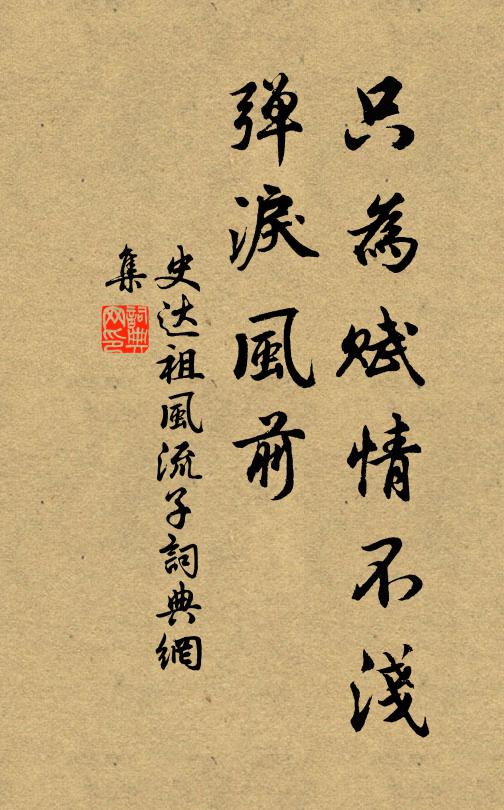 只為賦情不淺
弹淚風前
史达祖風流子詞典網
集
詞典
网印